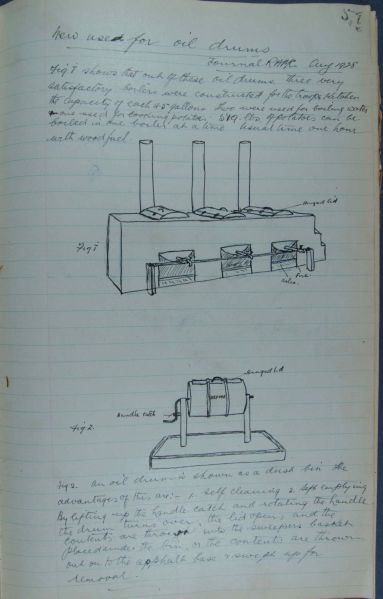 New uses for oil drums
Journal RAMC Aug 1925
Fig 1 shows that out of these oil drums three very
satisfactory boilers were constructed for the troops kitchen
the capacity of each 45 gallons. Two were used for boiling water
one used for cooking potatoes. lbs of potatoes can be
boiled in one boiler at a time Usual time one hour
with wood fuel.
Hinged lid
Fig 1
Fire
Ashes
Hinged lid
Handle catch
REFUSE
Fig 2.
Fig 2. An oil drum is shown as a dust bin the
advantages of this are:- 1. Self cleaning 2 Self emptying
By lifting up the handle catch and rotating the handle
the drum turns over, the lid opens, and the
contents are thrown into the sweepers basket
placed under the bin, or the contents are thrown
out on to the asphalt base & swept up for
removal.